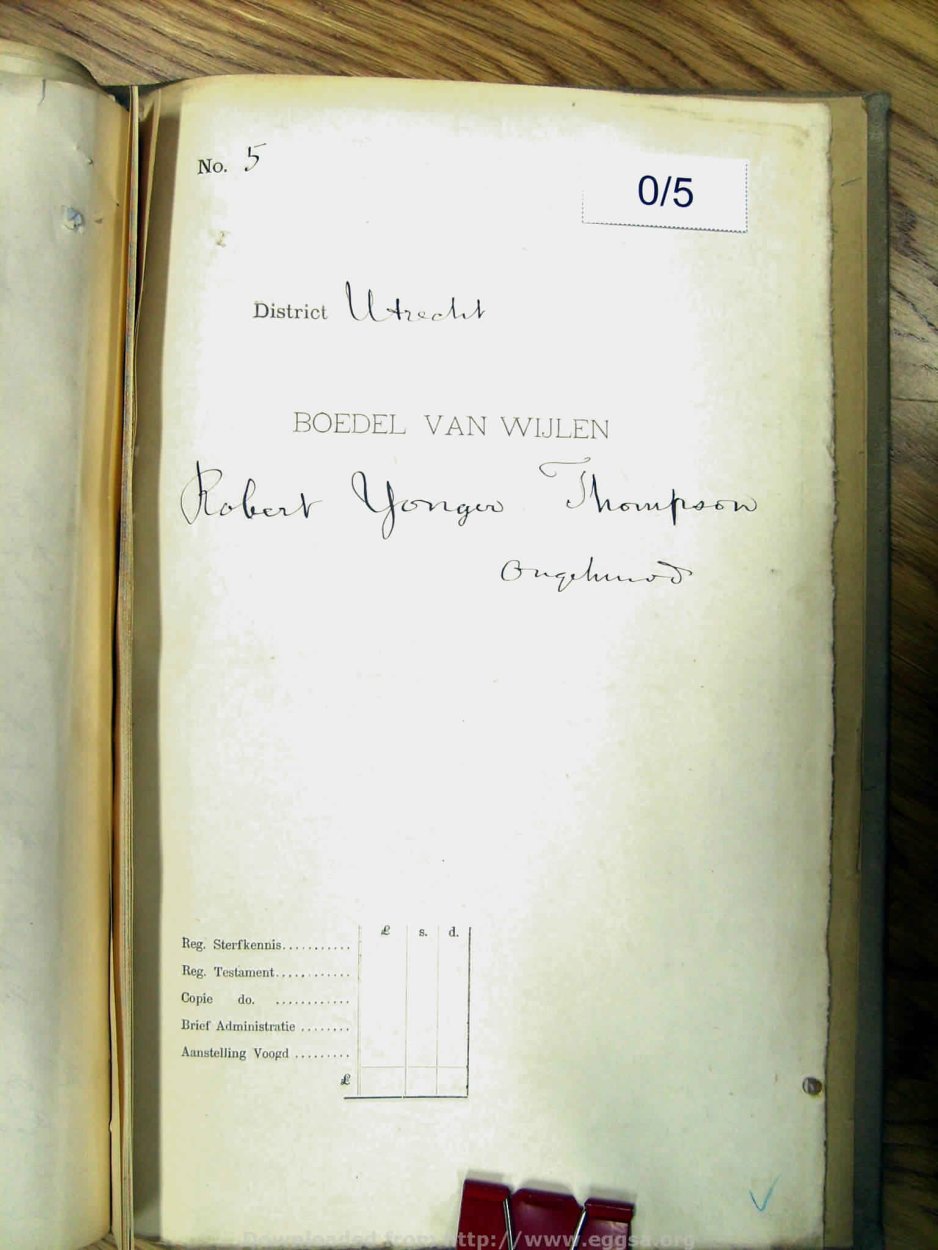 No. 5
0/5
District Utrecht
BOEDEL VAN WIJLEN
Robert Yonger Thompson
Ongehuwd
£ s. d.
Reg. Sterfkennis...........
Reg. Testament............
Copie do. ............
Brief Administratie ........
Aanstelling Voogd .........
£
Downloaded from http://www.eggsa.org